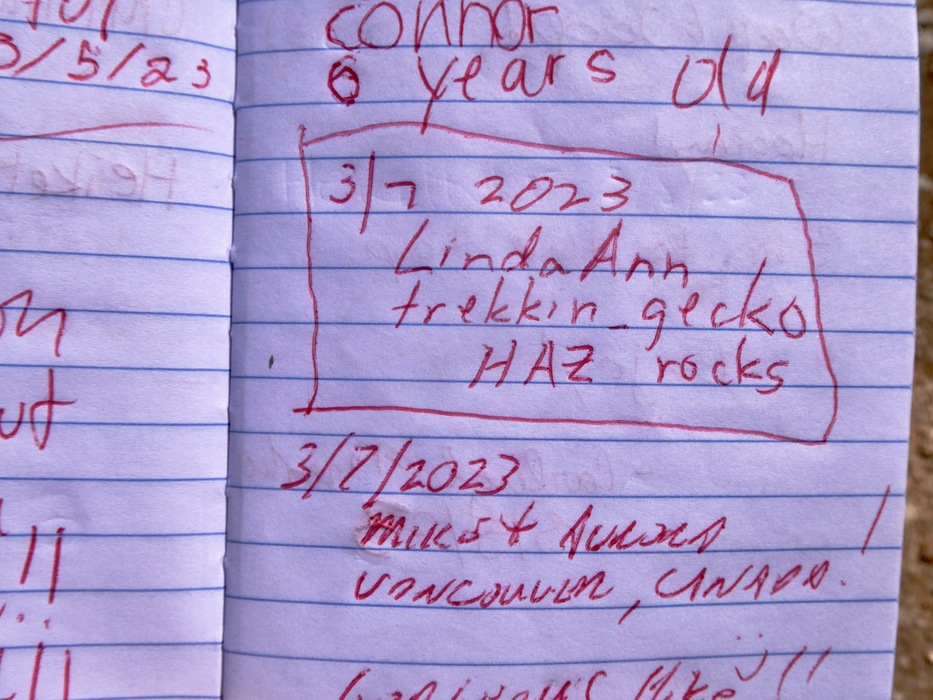 3/5/23
connor
6 years old
3/7 2023
LindaAnn
trekkin_gecko
HAZ rocks
3/7/2023
VANCOUVER, CANADA.
Hike !!